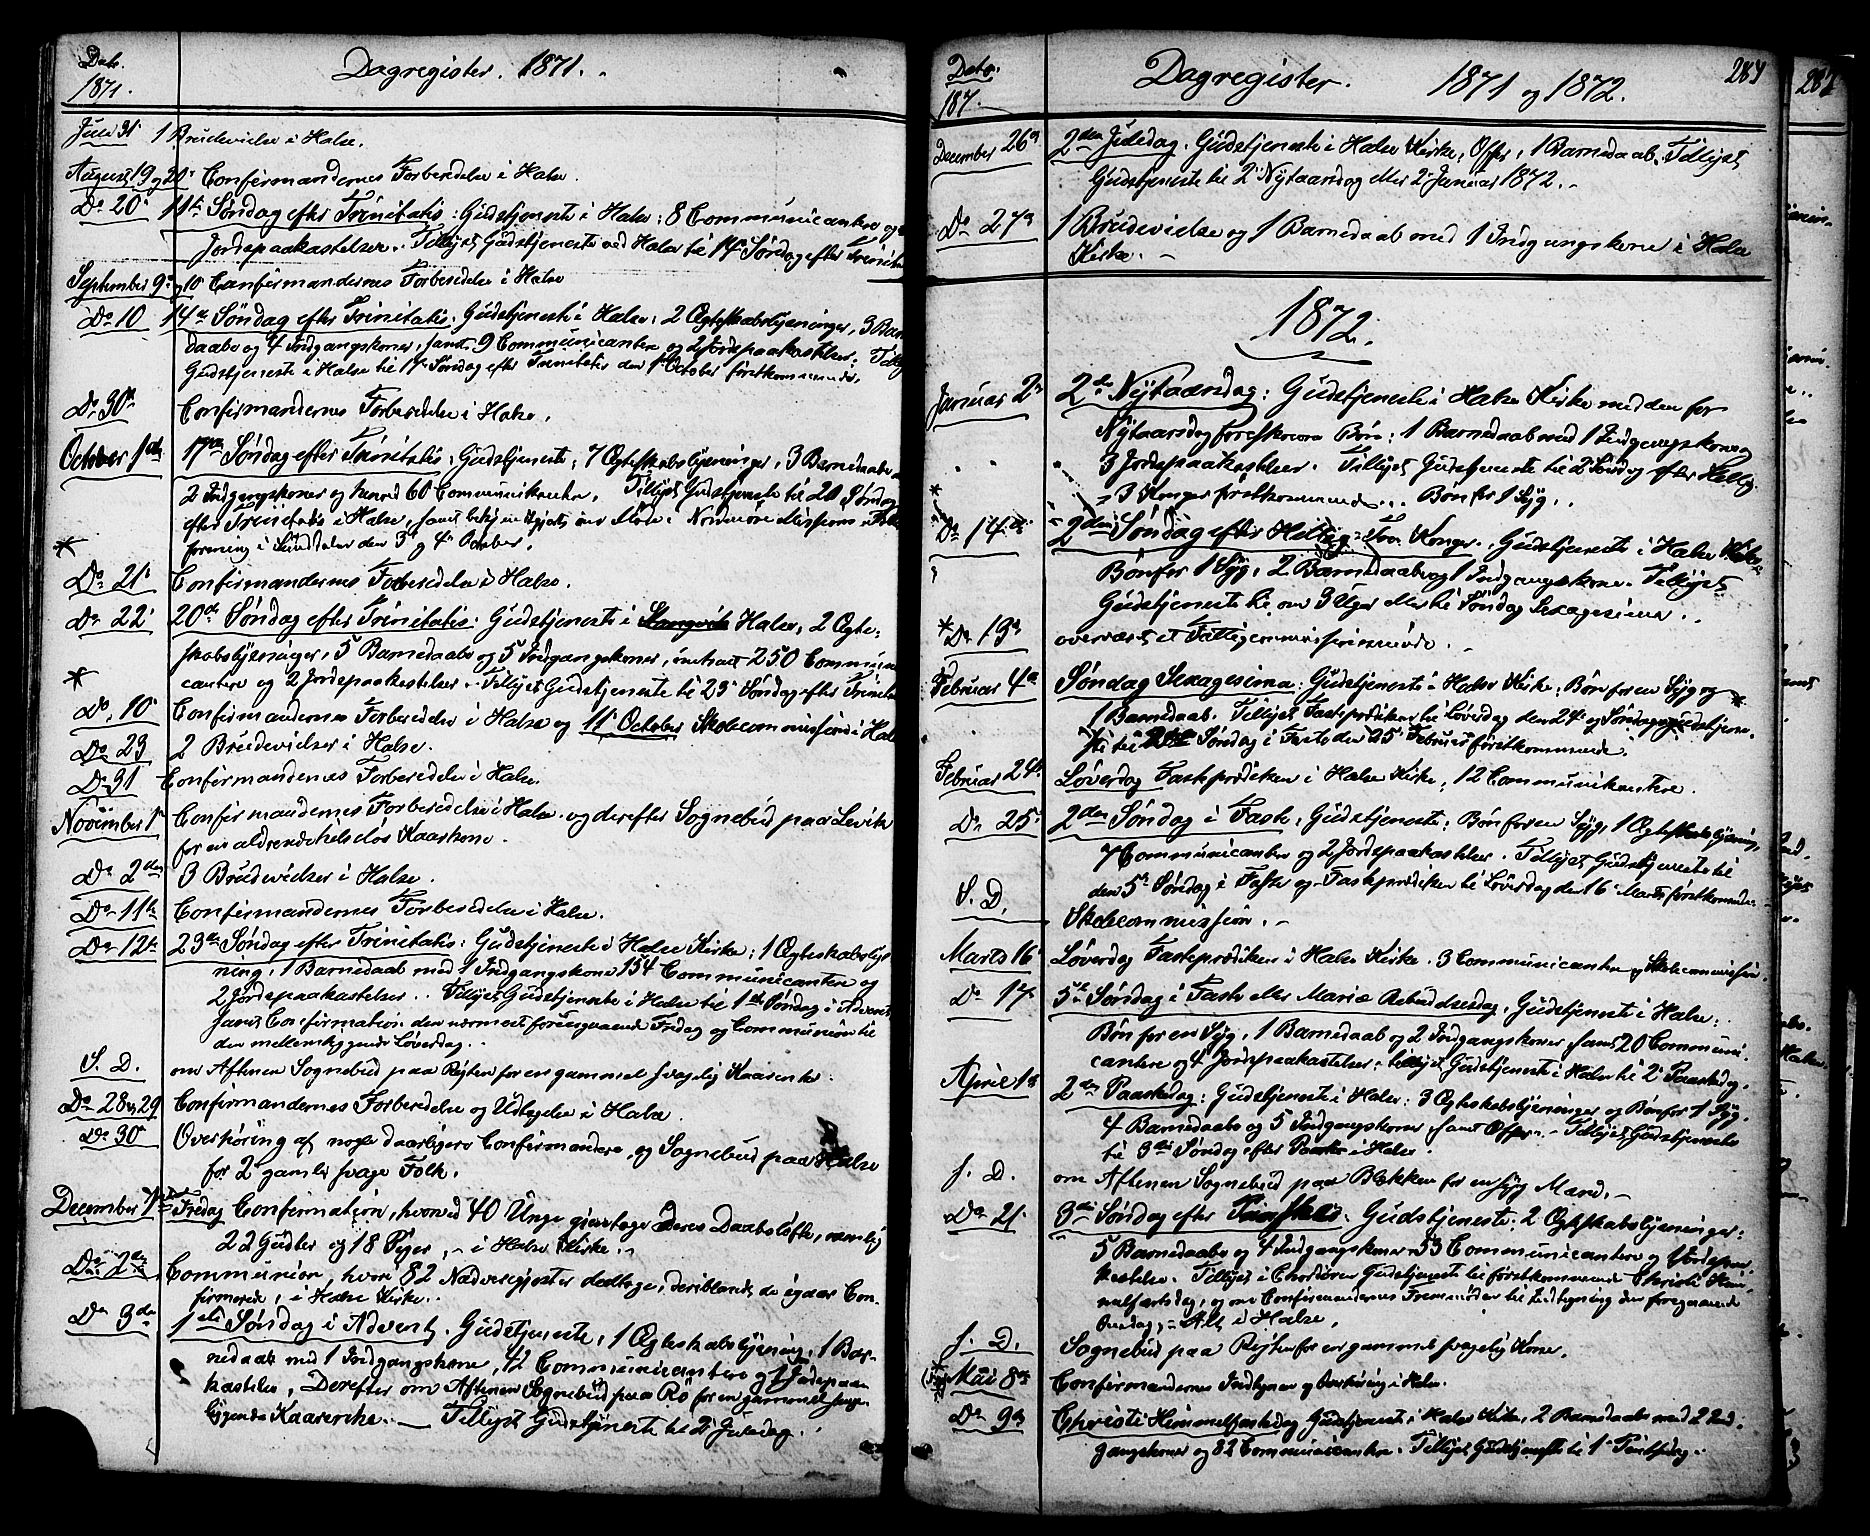 Dato
1871.
Dagregister. 1871.
Juli 31 1 Brudevielse i Halse.
August 19 og 20 Confirmandernes Forberedelse i Halse.
Do 20 11te Søndag efter Trinitatis: Gudstjeneste i Halse: 8 Communicantere og
Jordspaakastelser. Tillyst Gudstjeneste ved Halse til 14 Søndag efter Trinitatis
September 9 og 10 Confirmandernes Forberedelse i Halse
Do 10 14de Søndag efter Trinitatis: Gudstjeneste i Halse: 2 Ægteskabslysninger, 3 Bar-
daabe og 4 Indgangskoner, samt 9 Communicantere og 2 Jordspaakastelser. Tillyst
Gudstjeneste i Halse til 17 Søndag efter Trinitatis den 1 October førstkommende.
Do 30te Confirmandernes Forberedelse i Halse.
October 1ste 17de Søndag efter Trinitatis: Gudstjeneste, 7 Ægteskabslysninger, 3 Barnedaabe
2 Indgangskoner og henved 60 Communikantere. Tillyst Gudstjeneste til 20 Søndag
efter Trinitatis i Halse, samt Møde i Nordmøre Missions
forening i Sunddalen den 3 og 4 October.
Do 21 Confirmandernes Forberedelse i Halse.
Do 22 20de Søndag efter Trinitatis: Gudstjeneste i Stangvik Halse, 2 Ægte-
skabslysninger, 5 Barnedaabe og 5 Indgangskoner, 250 Commun
cantere og 2 Jordspaakastelser. Tillyst Gudstjeneste til 23 Søndag efter Trinitat
Do 10 Confirmandernes Forberedelse i Halse og 11 October Skolecommission i Hal
Do 23 2 Brudevielser i Halse.
Do 31 Confirmandernes Forberedelse i Halse.
November 1 Confirmandernes Forberedelse i Halse og derefter Sognebud paa Levik
for en aldrende helseløs Kaarkone.
Do 2den 3 Brudevielser i Halse.
Do 11te Confirmandernes Forberedelse i Halse.
Do 12te 23de Søndag efter Trinitatis: Gudstjeneste i Halse Kirke: 1 Ægteskabslys
ning, 1 Barnedaab med 1 Indgangskone 154 Communicantere og
2 Jordspaakastelser. Tillyst Gudstjeneste i Halse til 1ste Søndag i Advent
samt Confirmation den nærmest foregaaende Fredag og Communion til
den mellemliggende Løverdag.
S. D. om Aftenen Sognebud paa Røjten for en gammel svagelig Kaarenke.
Do 28 og 29 Confirmandernes Forberedelse og Udtagelse i Halse.
Do 30 Overhøring af nogle daarligere Confirmander, og Sognebud paa Halse
for 2 gamle svage Folk.
December 1ste Fredag Confirmation, hvorved 40 Unge gjentoge Deres Daabsløfte, nemlig
22 Gutter og 18 Piger, i Halse Kirke.
Do 2den Communion, hvor 82 Nadvergjester deeltoge, deriblandt de igaar Con-
firmerede, i Halse Kirke.
Do 3die 1ste Søndag i Advent. Gudstjeneste, 1 Ægteskabslysning, 1 Bar-
nedaab med 1 Indgangskone, 42 Communicantere og 1 Jordspaa-
kastelse, Derefter om Aftenen Sognebud paa Rø for en gammel senge-
liggende Kaarenke. Tillyst Gudstjeneste til 2 Juledag.
Dato.
187.
Dagregister. 1871 og 1872.
284
December 26 2den Juledag. Gudstjeneste i Halse Kirke, Offer, 1 Barnedaab. Tillyst
Gudstjeneste til 2 Nytaarsdag eller 2 Januar 1872.
Do 27 1 Brudevielse og 1 Barnedaab med 1 Indgangskone i Halse
Kirke.
1872.
Januar 2 2den Nytaarsdag: Gudstjeneste i Halse Kirke med den for
Nytaarsdag foreskrevne Bøn: 1 Barnedaab med 1 Indgangskone og
3 Jordspaakastelser. Tillyst Gudstjeneste til 2 Søndag efter Hellig
3 Konger førstkommende. Bøn for 1 Syg.
Do 14de 2den Søndag efter Hellig Tre Konger. Gudstjeneste i Halse Kirke
Bøn for 1 Syg, 2 Barnedaabe og 1 Indgangskone. Tillyst
Gudstjeneste til om 3 Uger eller til Søndag Sexagesima.
Do 19 overværet et Fattigcommissionsmøde.
Februar 4 Søndag Sexagesima: Gudstjeneste i Halse Kirke: Bøn for en Syg og
1 Barnedaab. Tillyst Fasteprædiken til Løverdag den 24 og Søndagsgudstjene-
ste til 2den Søndag i Faste den 25 Februar førstkommende.
Februar 24 Løverdag Fasteprædiken i Halse Kirke, 12 Communikantere.
Do 25 2den Søndag i Faste, Gudstjeneste: Bøn for en Syg, 1 Ægteskabslysning,
7 Communicantere og 2 Jordspaakastelser. Tillyst Gudstjeneste til
den 5te Søndag i Faste og Fasteprædiken til Løverdag den 16 Marts førstkommende.
S. D. Skolecommission.
Marts 16 Løverdag Fasteprædiken i Halse Kirke. 3 Communicantere og Skolecommission.
Do 17 5te Søndag i Faste eller Mariæ Bebudelsesdag, Gudstjeneste i Halse:
Bøn for en Syg, 1 Barnedaab og 2 Indgangskoner, samt 20 Communi-
cantere og 4 Jordspaakastelser: tillyst Gudstjeneste i Halse til 2 Paaskedag.
April 1ste 2den Paaskedag: Gudstjeneste i Halse: 3 Ægteskabslysninger og Bøn for 1 Syg.
4 Barnedaabe og 5 Indgangskoner samt Offer. Tillyst Gudstjeneste
til 3die Søndag efter Paaske i Halse.
S. D. om Aftenen Sognebud paa Blekken for en syg Mand.
Do 21 3die Søndag efter Paaske: Gudstjeneste: 2 Ægteskabslysninger:
5 Barnedaabe og 4 Indgangskoner 53 Communicantere og 1 Jordspaa-
kastelse. Tillyst i Chordøren Gudstjeneste til førstkommende Christi Him-
melfartsdag, og om Confirmandernes Fremmøden til Indtegning den foregaaende
Onsdag, Alt i Halse.
S. D. Sognebud paa Røjten for en gammel svagelig Kone.
Mai 8 Confirmandernes Indtegnen og Overhøring i Halse.
Do 9 Christi Himmelfartsdag Gudstjeneste i Halse Kirke, 2 Barnedaabe med 2 Ind-
gangskoner og 32 Communicantere. Tillyst Gudstjeneste til 1 Pintsedag.